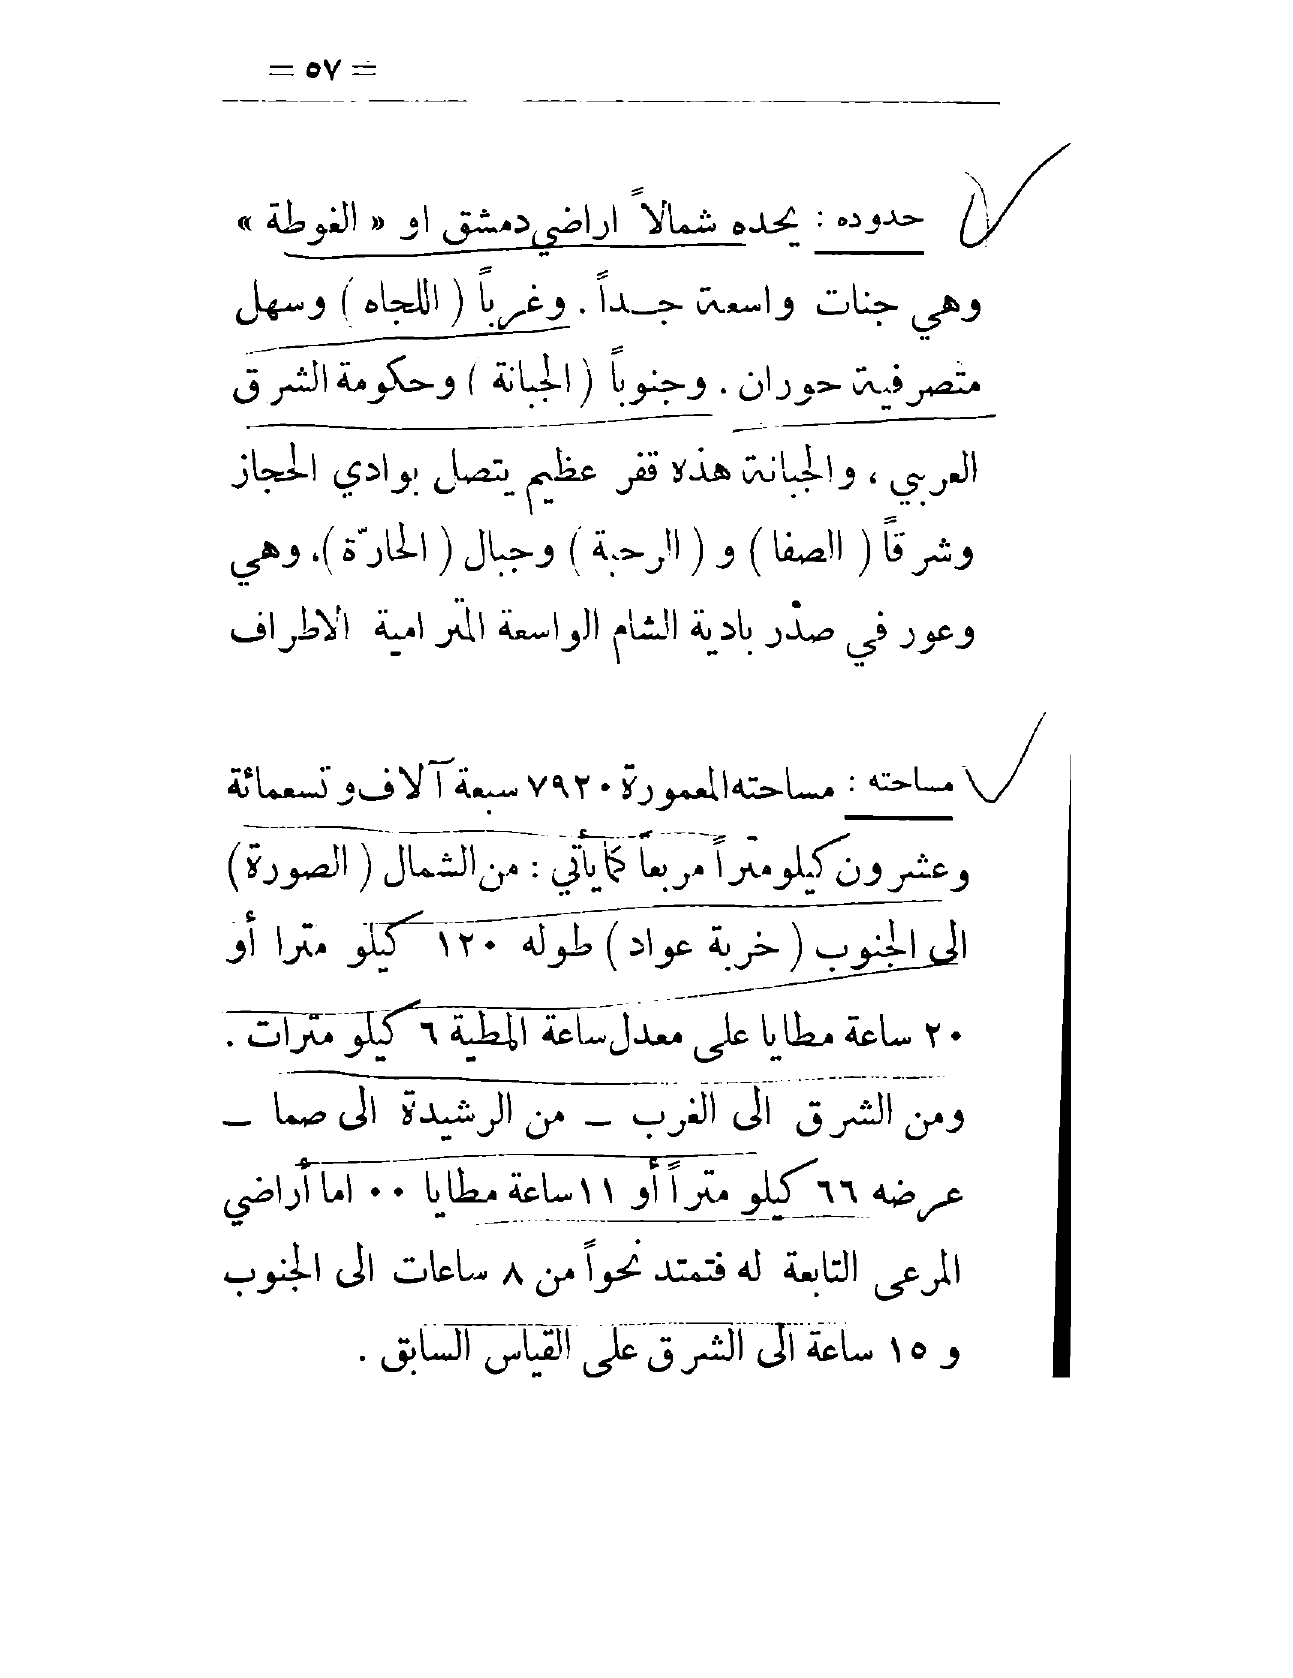 = ٥٧ =
حدوده : يحده شمالاً اراضي دمشق او « الغوطة »
وهي جنات واسعة جـداً . وغرباً ( اللجاه ) وسهل
متصرفية حوران . وجنوباً ( الجبانة ) وحكومة الشرق
العربي ، والجبانة هذه قفر عظيم يتصل بوادي الحجاز
وشرقاً ( الصفا ) و ( الرحبة ) وجبال ( الحارّة ). وهي
وعور في صدر بادية الشام الواسعة المترامية الاطراف
مساحته : مساحته المعمورة ٧٩٢٠ سبعة آلاف وتسعمائة
وعشرون كيلو متراً مربعاً كما يأتي : من الشمال ( الصورة )
الى الجنوب ( خربة عواد ) طوله ١٢٠ كيلو مترا أو
٢٠ ساعة مطايا على معدل ساعة المطية ٦ كيلو مترات .
ومن الشرق الى الغرب – من الرشيدة الى صما –
عرضه ٦٦ كيلو متراً أو ١١ ساعة مطايا ٠٠ اما أراضي
المرعى التابعة له فتمتد نحواً من ٨ ساعات الى الجنوب
و ١٥ ساعة الى الشرق على القياس السابق .